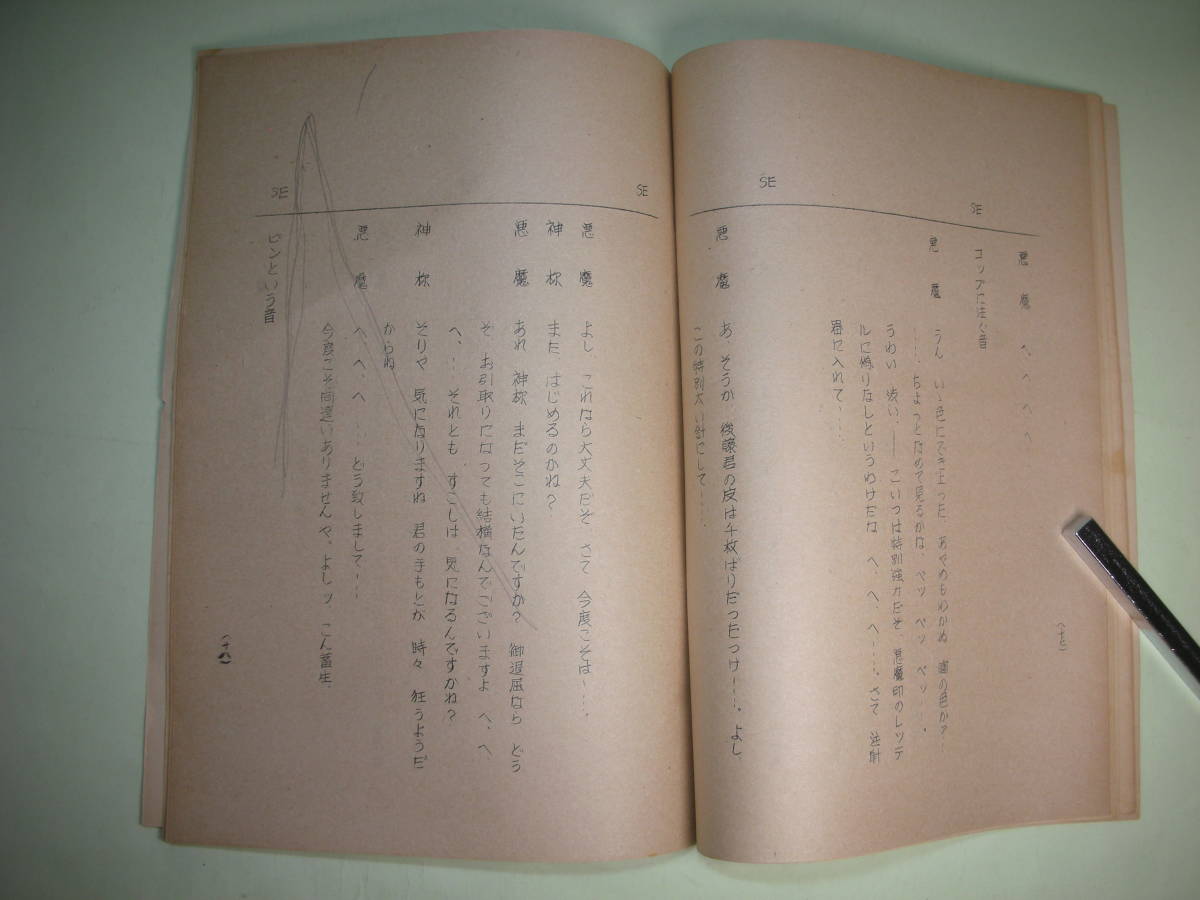 悪魔 へ、へ、へ、へ
SE コップに注ぐ音
悪魔 うん いゝ色にでき上った あやめもわかぬ 歯の色か?‥
‥‥、ちょっとなめて見るかな、ペッ ペッ ペッ‥‥。
うわい 渋い、――こいつは特別強力だぞ、悪魔印のレッテ
ルに偽りなしというわけだな へ、へ、へ‥‥、さて 注射
器に入れて‥‥‥
SE
悪魔 あ、そうか 後譲君の皮は千枚ばりだったっけ‥‥。よし、
この特別太い針にして‥‥‥、
(十七)
SE
悪魔 よし これなら大丈夫だぞ さて 今度こそは‥‥、
神様 また はじめるのかね?
悪魔 あれ 神様 まだそこにいたんですか? 御退屈なら どう
ぞ お引取りになっても結構なんでございますよ へ、へ
へ、‥‥ それとも すこしは 気になるんですかね?
神様 そりゃ 気になりますね 君の手もとが 時々 狂うようだ
からね
悪魔 へ、へ、へ‥‥‥ どう致しまして‥‥
今度こそ間違いありませんや。よしッ、こん畜生、
SE ピンという音
(十八)